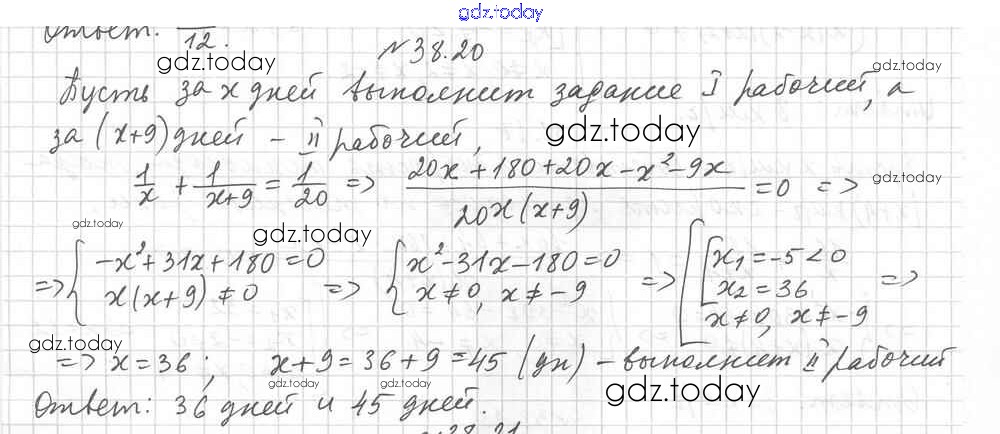 gdz.today
Ответ: 1/12.
gdz.today
№38.20
gdz.today
Пусть за x дней выполнит задание I рабочий, а
за (x+9) дней – II рабочий,
gdz.today
1/x + 1/(x+9) = 1/20 => (20x+180+20x-x²-9x)/(20x(x+9)) = 0 =>
gdz.today
gdz.today
gdz.today
=> { -x²+31x+180=0 ; x(x+9)≠0 => { x²-31x-180=0 ; x≠0, x≠-9 => { [ x₁=-5<0 ; x₂=36 ; x≠0, x≠-9 =>
gdz.today
=> x=36; x+9=36+9=45 (дн) – выполнит II рабочий
gdz.today
gdz.today
Ответ: 36 дней и 45 дней.